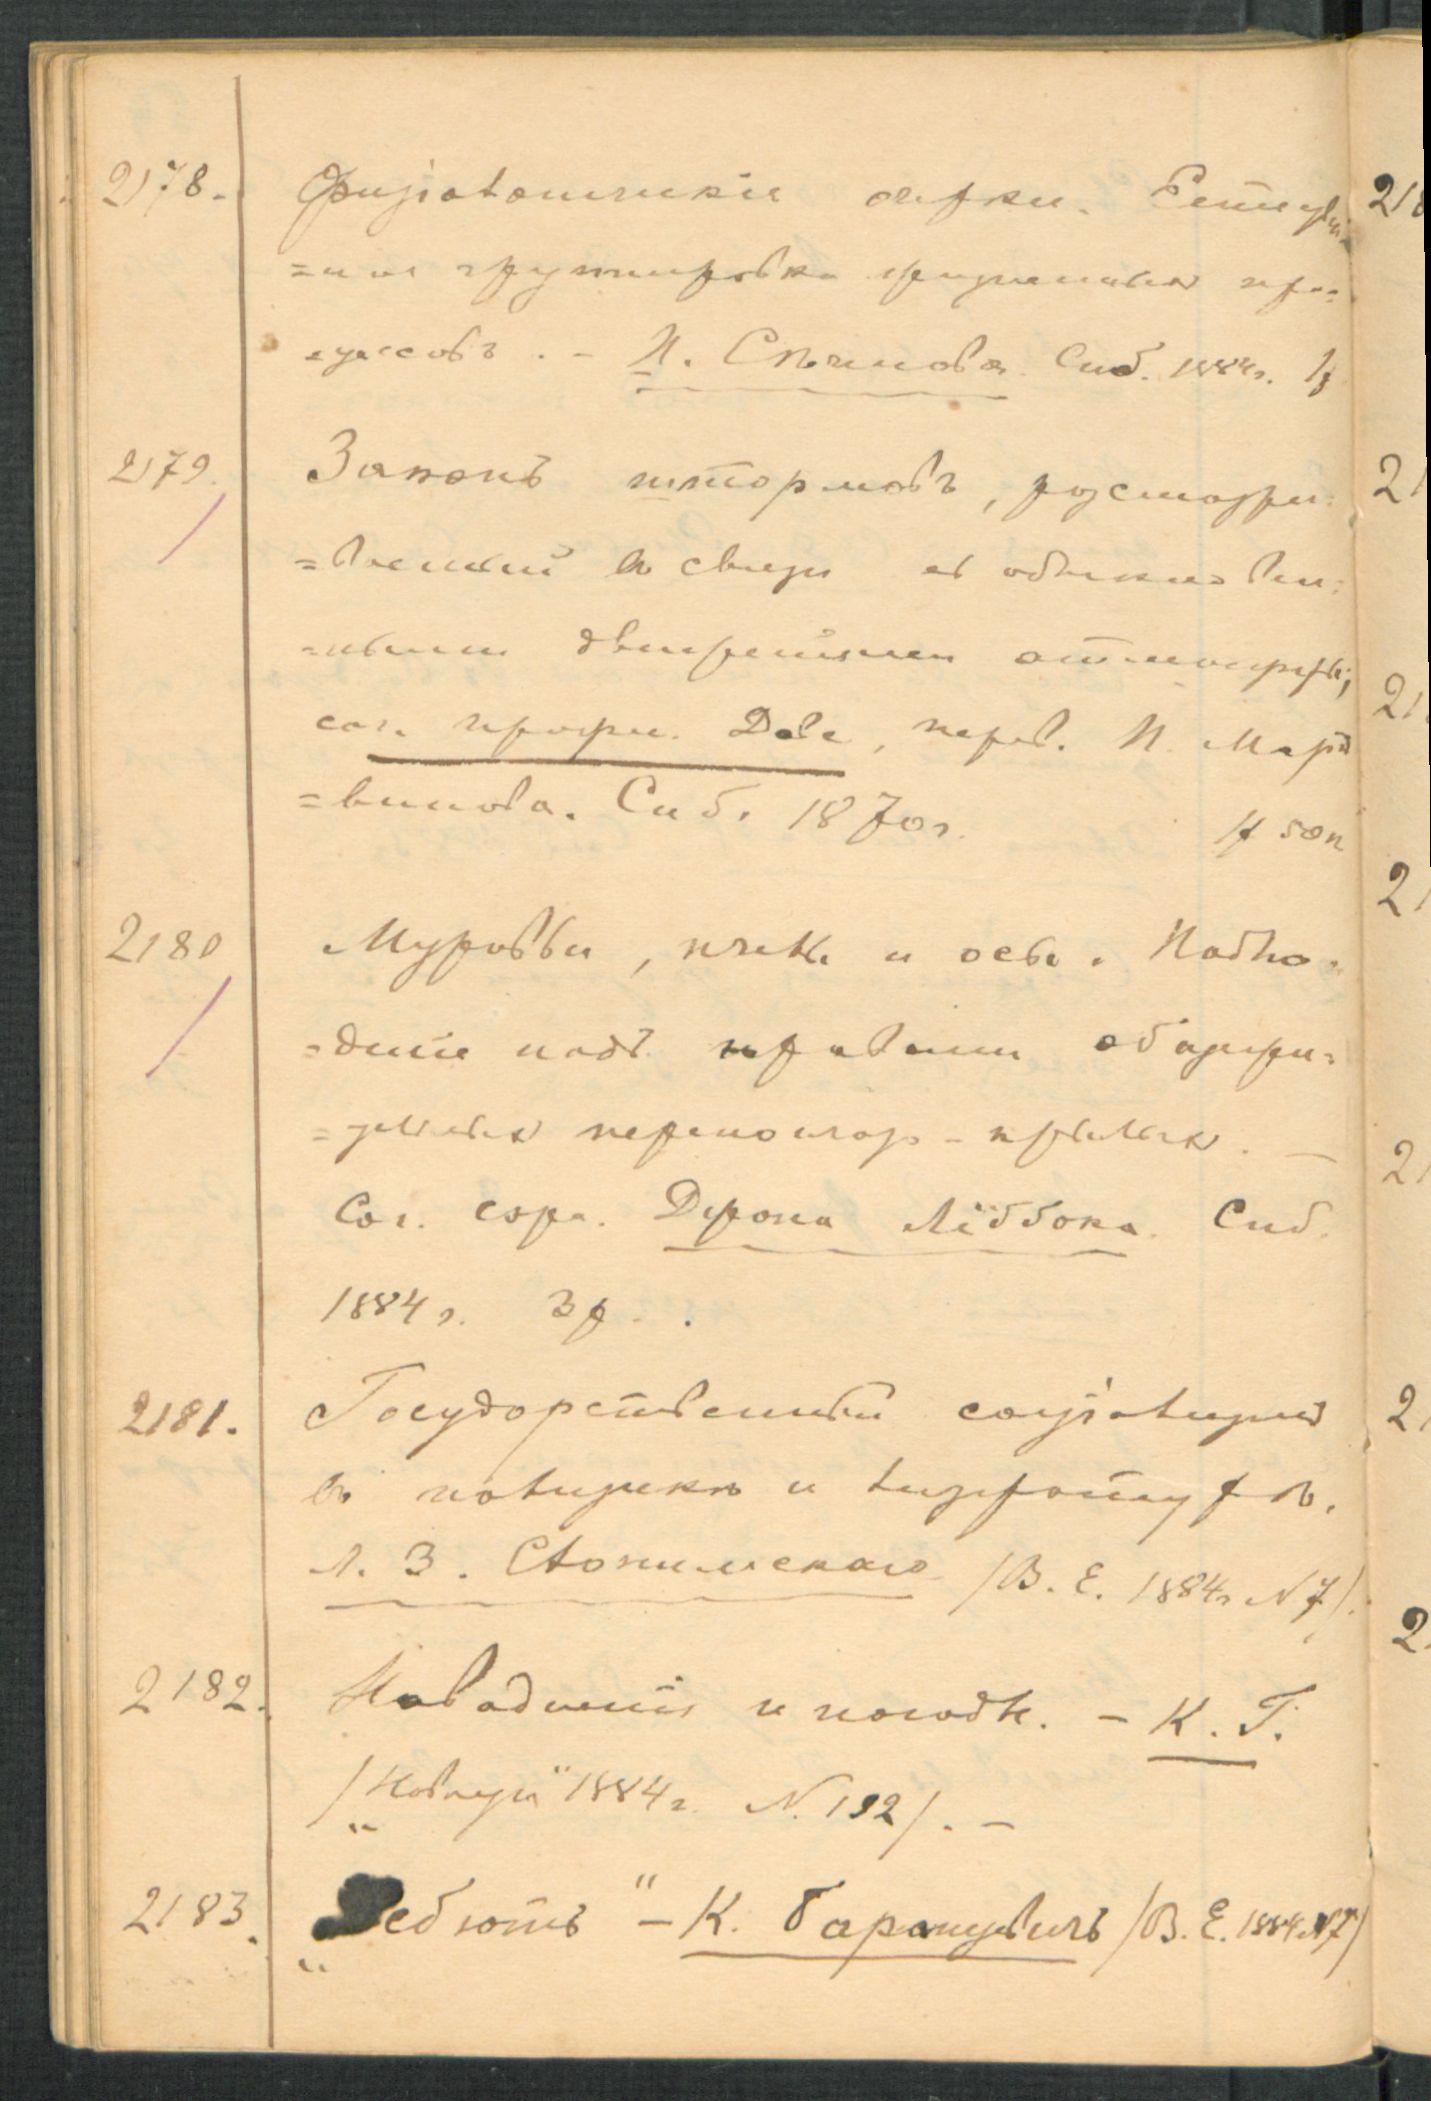 2178. Физіологическіе очерки. Естестве
=нная группировка физическихъ про=
цессовъ. – И. Сѣченова. Спб. 1884г. 1р
2179. Законъ штормовъ, разсматри
=ваемый въ связи съ обыкновен=
=ными движеніями атмосферы;
соч. профес. Дове, перев. Н. Март
=винова. Спб. 1870г. 1р 50к
2180 Муравьи, пчелы и осы. Наблю
=деніе надъ нравами общежи=
=тельныхъ перепончато-крылыхъ. –
Соч. сэра Джона Лёббока. Спб.
1884г. 3р.
2181. Государственный соціализмъ
въ политикѣ и литературѣ.
Л. З. Слонимскаго /В. Е. 1884г N 7/.
2182. Наводненія и погода. – К. Г.
/„Новости" 1884г. N. 192/. –
2183. „Дебютъ" – К. Баранцевичъ /В. Е. 1884г N7/
218
21
21
21
21
21
2